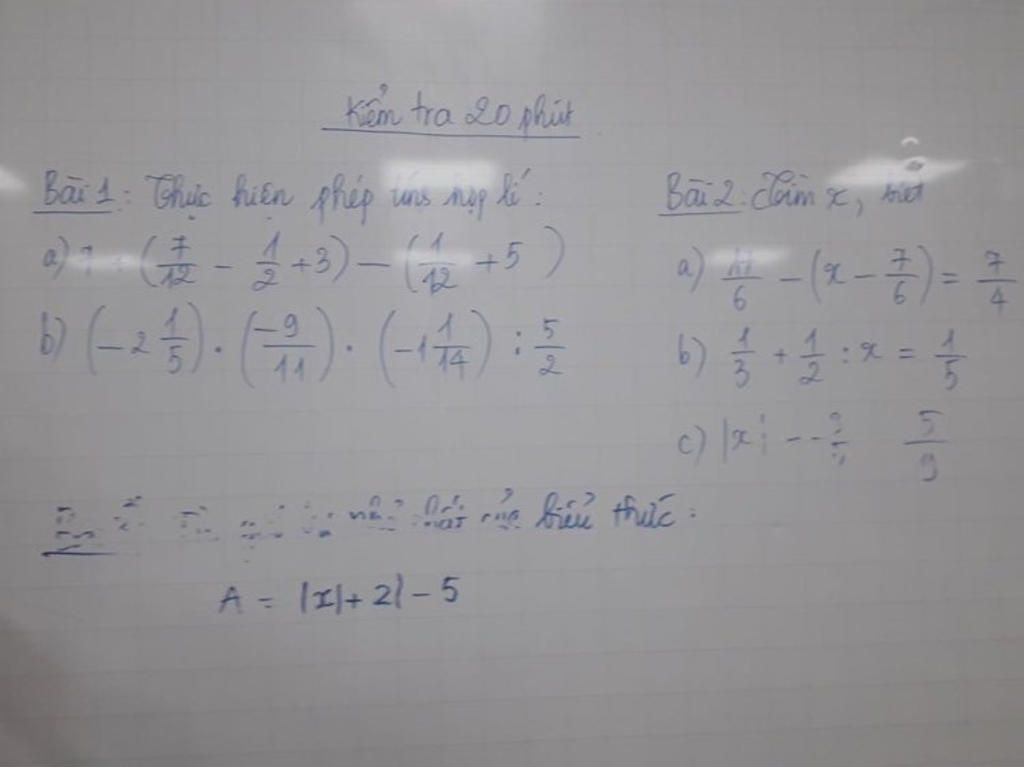 Kiểm tra 20 phút
Bài 1: Thực hiện phép tính hợp lí:
a) (7/12 - 1/2 + 3) - (1/12 + 5)
b) (-2 1/5) . (-9/11) . (-1 1/14) : 5/2
Bài 2: Tìm x, biết
a) /6 - (x - 7/6) = 7/4
b) 1/3 + 1/2 : x = 1/5
c) |x 5/9
biểu thức:
A = |x|+ 2| - 5